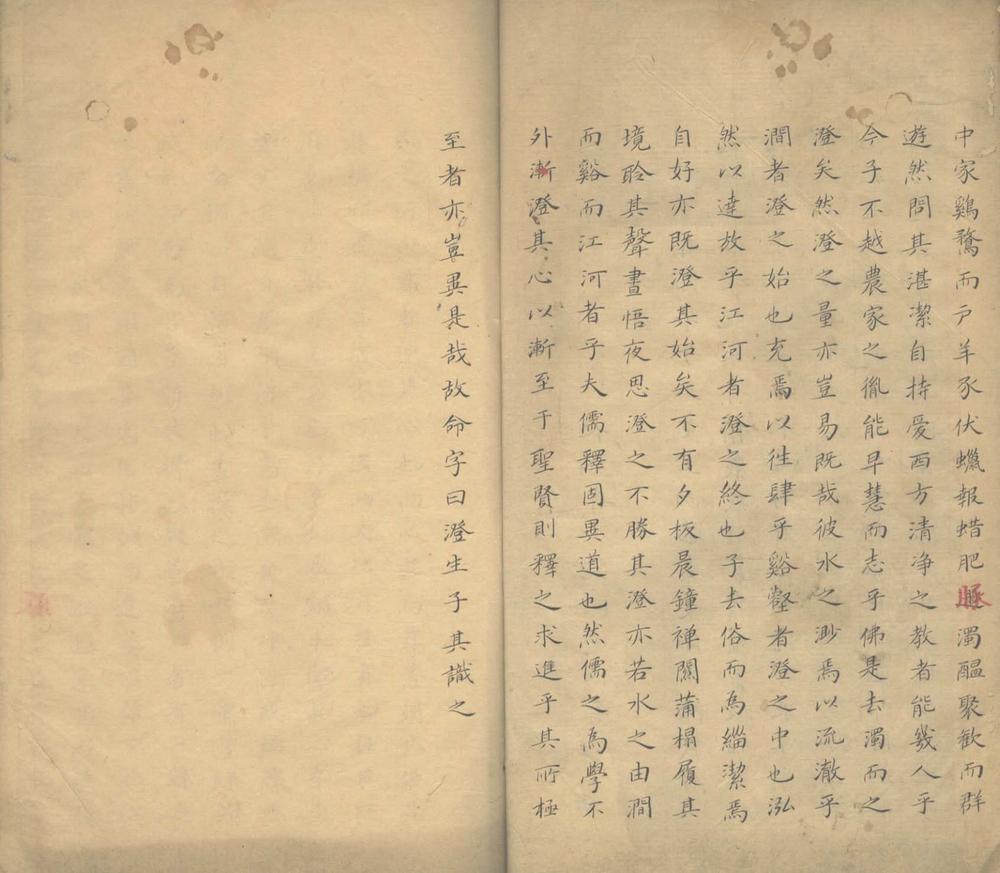 中家鷄鶩而戶羊豕伏蠟報蜡肥豚濁醖聚歡而群
遊然問其湛潔自持愛西方清净之教者能幾人乎
今子不越農家之胤能早慧而志乎佛是去濁而之
澄矣然澄之量亦豈易既哉彼水之渺焉以流澈乎
澗者澄之始也充焉以徃肆乎谿壑者澄之中也泓
然以達放乎江河者澄之終也子去俗而為緇潔焉
自好亦既澄其始矣不有夕板晨鐘禅關蒲榻履其
境聆其聲晝悟夜思澄之不勝其澄亦若水之由澗
而谿而江河者乎夫儒釋固異道也然儒之為學不
外漸澄其心以漸至于聖賢則釋之求進乎其所極
至者亦豈異是哉故命字曰澄生子其識之